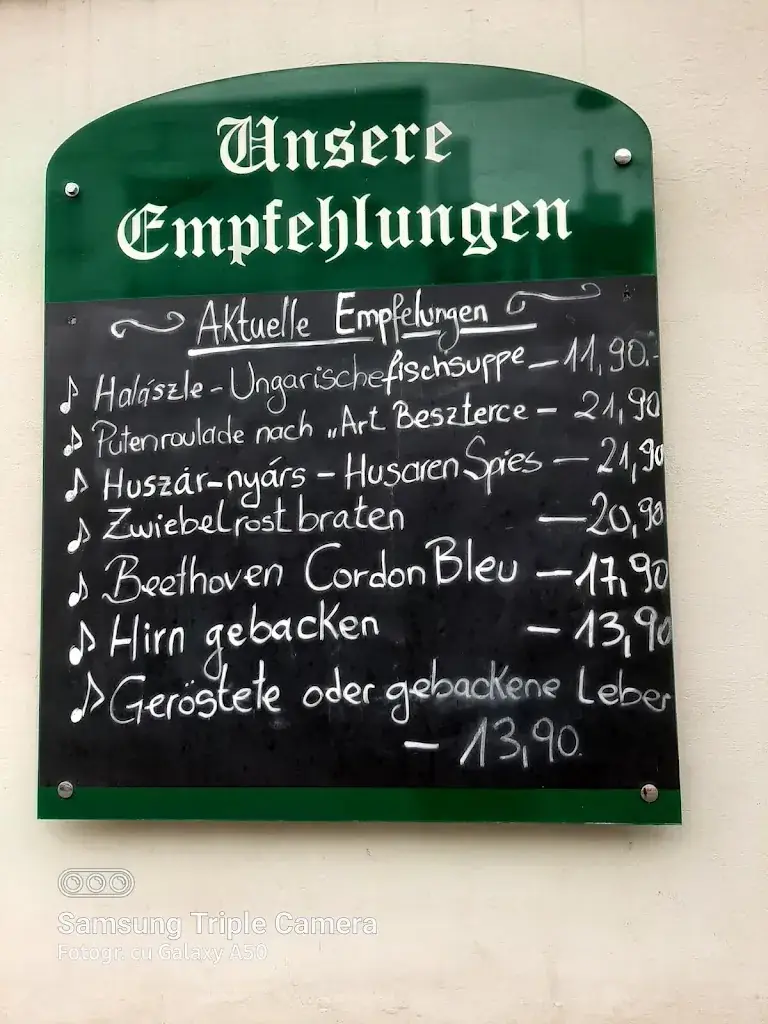 Unsere
Empfehlungen
Aktuelle Empfelungen
Halászle - Ungarische fischsuppe — 11,90.-
Putenroulade nach „Art Beszterce — 21,90
Huszár-nyárs — Husaren Spies — 21,90
Zwiebelrostbraten — 20,90
Beethoven Cordon Bleu — 17,90
Hirn gebacken — 13,90
Geröstete oder gebackene Leber
— 13,90.
Samsung Triple Camera
Fotogr. cu Galaxy A50